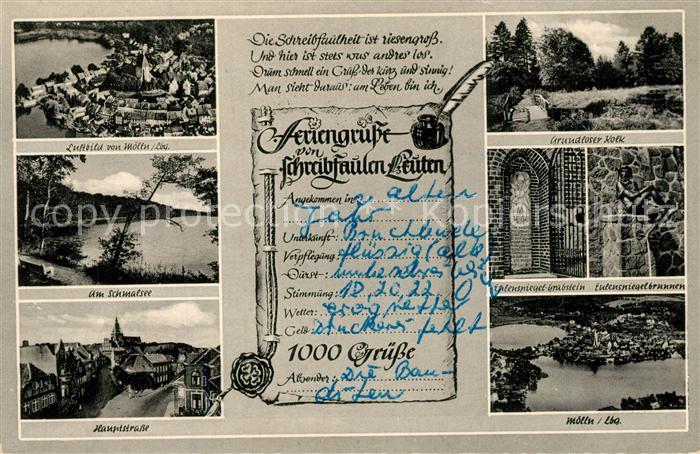 Die Schreibfaulheit ist riesengroß.
Und hier ist stets was andres los.
Drum schnell ein Gruß, der kurz und sinnig!
Man sieht daraus: am Leben bin ich.
Luftbild von Mölln/Lbg.
Am Schmalsee
Hauptstraße
Feriengrüße
von
schreibfaulen Leuten
Angekommen in: alten
Jahr
Unterkunft:
Verpflegung: flüssig
Durst:
Stimmung: 18, 20, 22
Wetter:
Geld: fehlt
1000 Grüße
Absender: Die Ban-
diten
Grundloser Kolk
Eulenspiegel-Grabstein Eulenspiegelbrunnen
Mölln / Lbg.
copyright